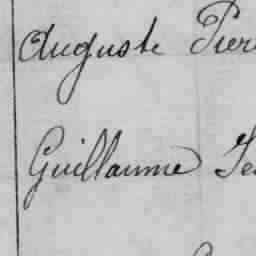 Auguste Pier
Guillaume Je